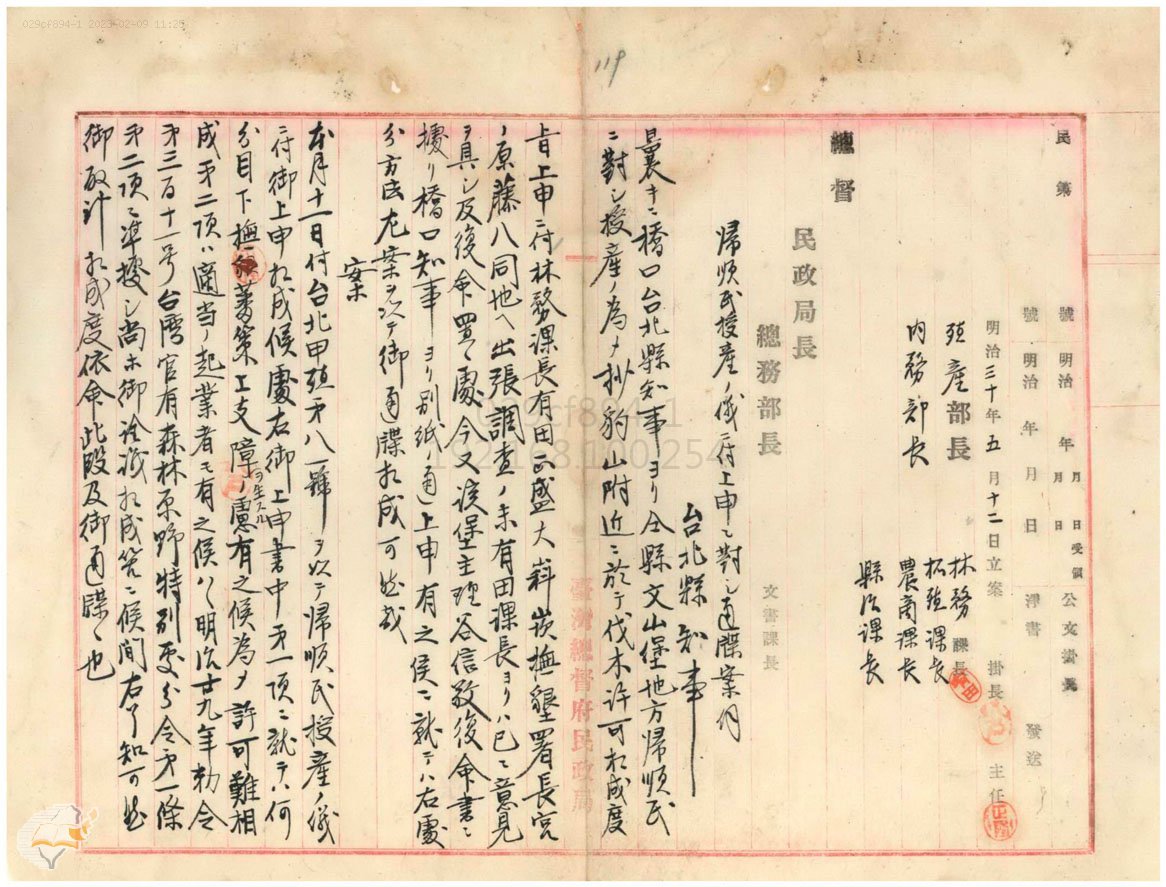 029cf894-1 2023-02-09 11:25
119
民第 號 明治 年 月 日受領 公文掛長
號 明治 年 月 日 淨書 發送
明治三十年五月十二日立案 掛長 主任
殖産部長
林務課長
拓殖課長
内務部長
農商課長
縣治課長
總督
民政局長
總務部長
文書課長
帰順民授産ノ儀ニ付上申ニ對シ通牒案伺
台北縣知事
曩キニ橋口台北縣知事ヨリ仝縣文山堡地方帰順民
ニ對シ授産ノ為メ 豹山附近ニ於テ伐木許可相成度
旨上申ニ付林務課長有田正盛大嵙崁撫墾署長宮
ノ原藤八同地ヘ出張調査ノ末有田課長ヨリハ已ニ意見
ヲ具シ及復命置候處今又 堡主理谷信敬復命書ニ
據リ橋口知事ヨリ別紙ノ通上申有之候ニ就テハ右處
分方法左案ヲ以テ御通牒相成可然哉
案
本月十一日付台北甲殖第八一號ヲ以テ帰順民授産ノ儀
ニ付御上申相成候處右御上申書中第一項ニ就テハ何
分目下撫蕃策上支障ヲ生スルノ慮有之候為メ許可難相
成第二項ハ適当ノ起業者モ有之候ハヽ明治廿九年勅令
第三百十一号台湾官有森林原野特別処分令第一條
第二項ニ準據シ尚御詮議相成筈ニ候間右了知可然
御取計相成度依命此段及御通牒候也
臺灣總督府民政局
029cf894-1
192.168.100.254